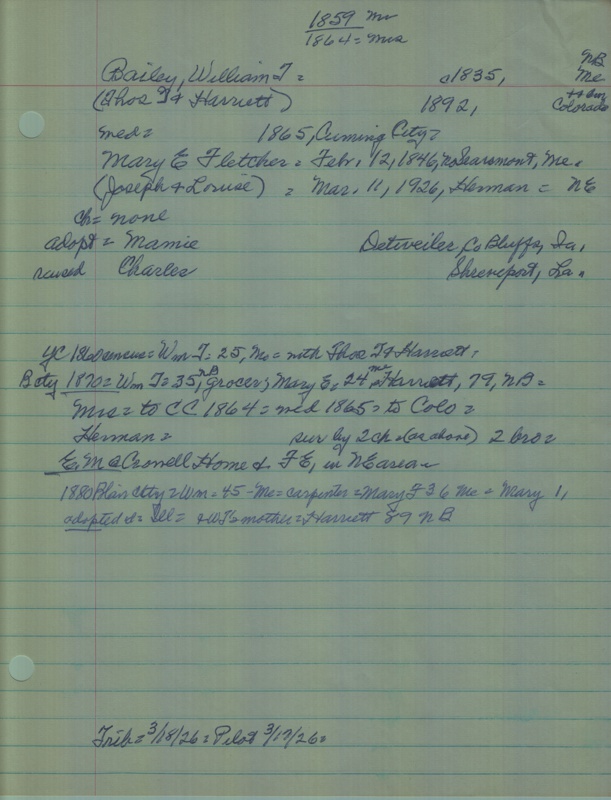 1859 Me
1864 = Mrs
Bailey, William T = c1835, NB
Me
(Thos T & Harriett) 1892, Colorado
med = 1865, Cuming City =
Mary E Fletcher = Febr. 12, 1846, no Searsmont, Me.
(Joseph & Louise) = Mar. 11, 1926, Herman = NE
ch = none
adopt = Mamie Detweiler, Co Bluffs, Ia.
raised Charles Shreveport, La.
YC 1860 census = Wm T = 25, Me = with Thos T & Harriett =
B cty 1870 = Wm T = 35, NB Grocer; Mary E, 24 Me Harriett, 79, NB =
Mrs = to CC 1864 = med 1865 = to Colo =
Herman = sur by 2 ch (as above) 2 bro =
E. M & F E, in NE area
1880 Blair City = Wm = 45 - Me = carpenter = Mary F 36 Me = Mary 1,
adopted d = Ill = & W T's mother = Harriett 89 NB
Trib = 3/18/26 = Pilot 3/17/26 =